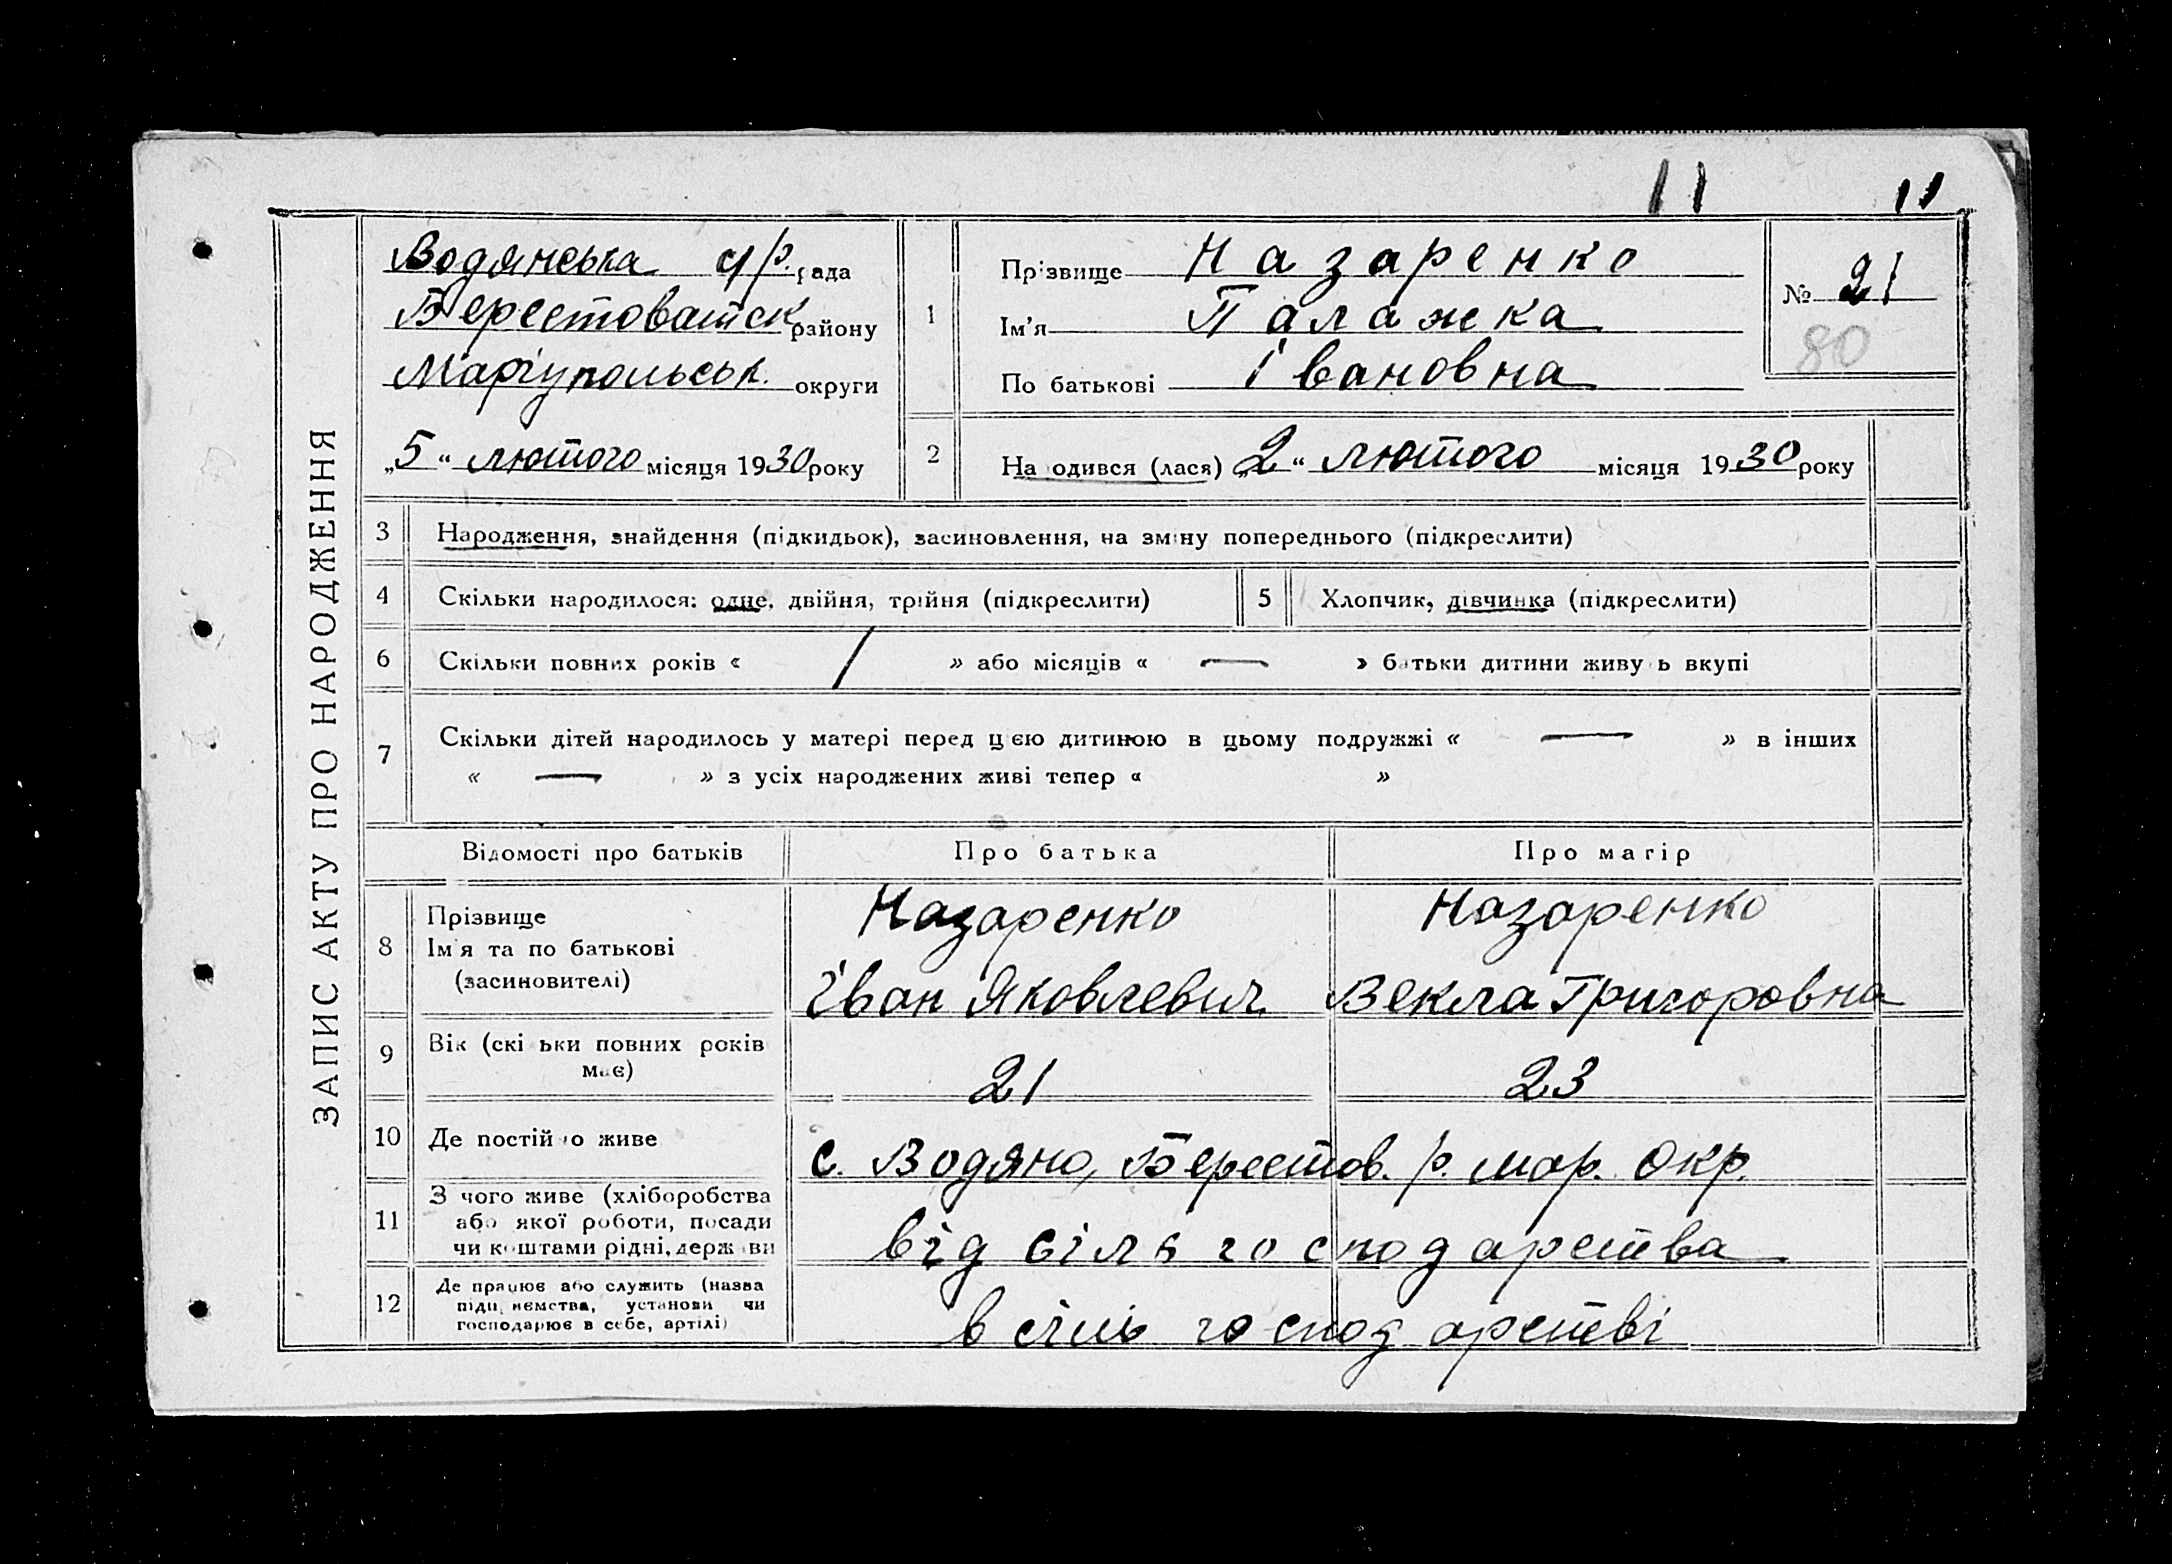 11 11
ЗАПИС АКТУ ПРО НАРОДЖЕННЯ
Водянська с/р. рада
Берестоватск району
Маріупольськ. округи
„5“ лютого місяця 1930 року
1
Прізвище Назаренко
Ім'я Палажка
По батькові Івановна
№ 21
80
2 На одився (лася) „2“ лютого місяця 1930 року
3 Народження, знайдення (підкидьок), засиновлення, на зміну попереднього (підкреслити)
4 Скільки народилося: одне, двійня, трійня (підкреслити) 5 Хлопчик, дівчинка (підкреслити)
6 Скільки повних років « / » або місяців « — » батьки дитини живу ь вкупі
7 Скільки дітей народилось у матері перед цією дитиною в цьому подружжі « — » в інших
« — » з усіх народжених живі тепер « »
Відомості про батьків Про батька Про матір
8 Прізвище Назаренко Назаренко
Ім'я та по батькові
(засиновителі) Іван Яковлевич Векла Григоровна
9 Вік (скі ьки повних років
має) 21 23
10 Де постійно живе с. Водяно, Берестов. р. мар. окр.
11 З чого живе (хліборобства
або якої роботи, посади
чи коштами рідні, держави від сіль господарства
12 Де працює або служить (назва
підприємства, установи чи
господарює в себе, артілі) в сіль господарстві